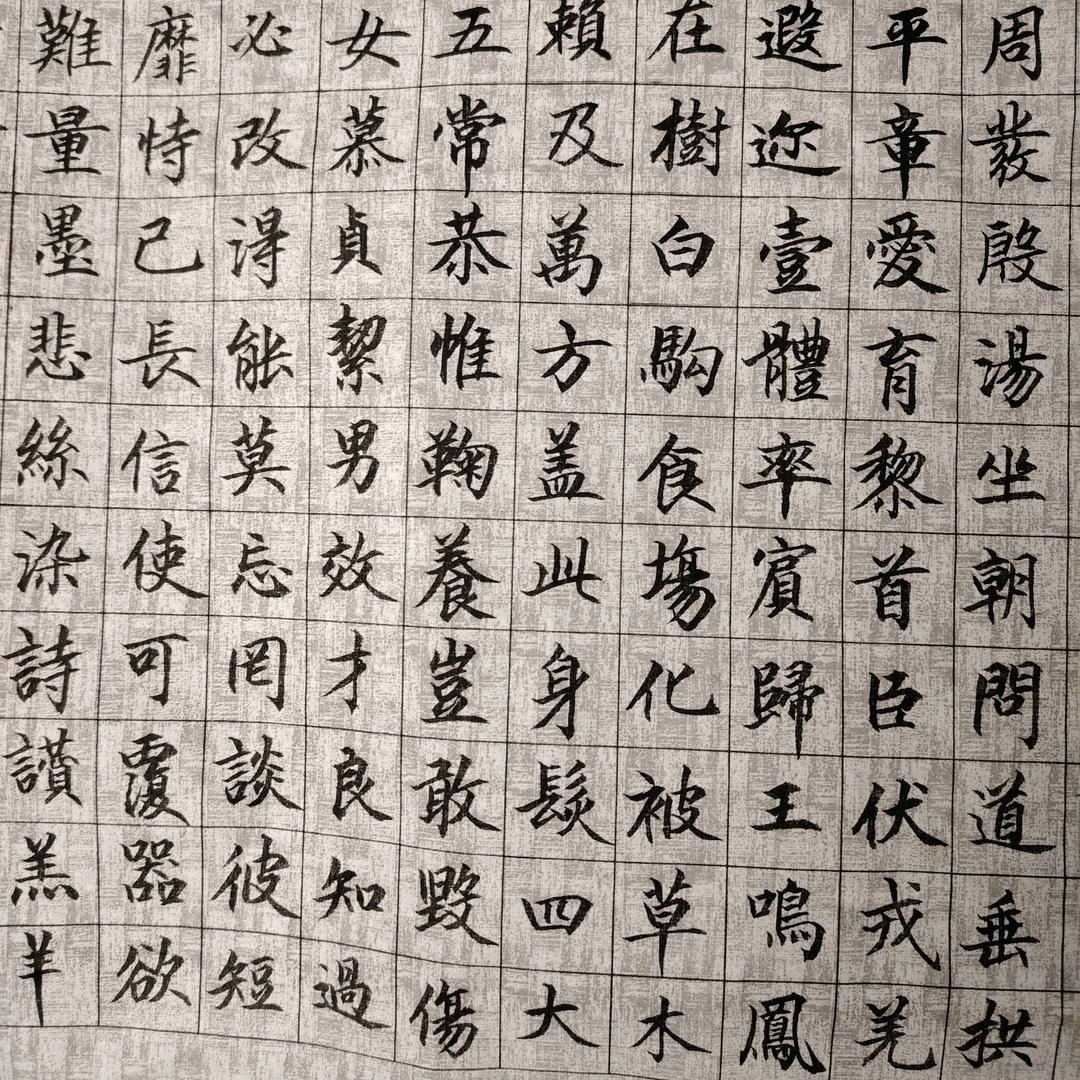 周發殷湯坐朝問道垂拱
平章愛育黎首臣伏戎羌
遐迩壹體率賓歸王鳴鳳
在樹白駒食場化被草木
賴及萬方盖此身髮四大
五常恭惟鞠養豈敢毀傷
女慕貞絜男效才良知過
必改得能莫忘罔談彼短
靡恃己長信使可覆器欲
難量墨悲絲染詩讚羔羊